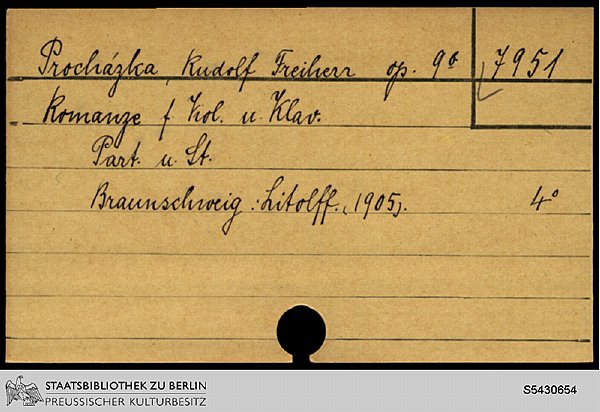 Procházka, Rudolf Freiherr op. 9b 7951
Romanze f Viol. u. Klav.
Part. u. St.
Braunschweig: Litolff. (1905). 4°
STAATSBIBLIOTHEK ZU BERLIN
PREUSSISCHER KULTURBESITZ
S5430654